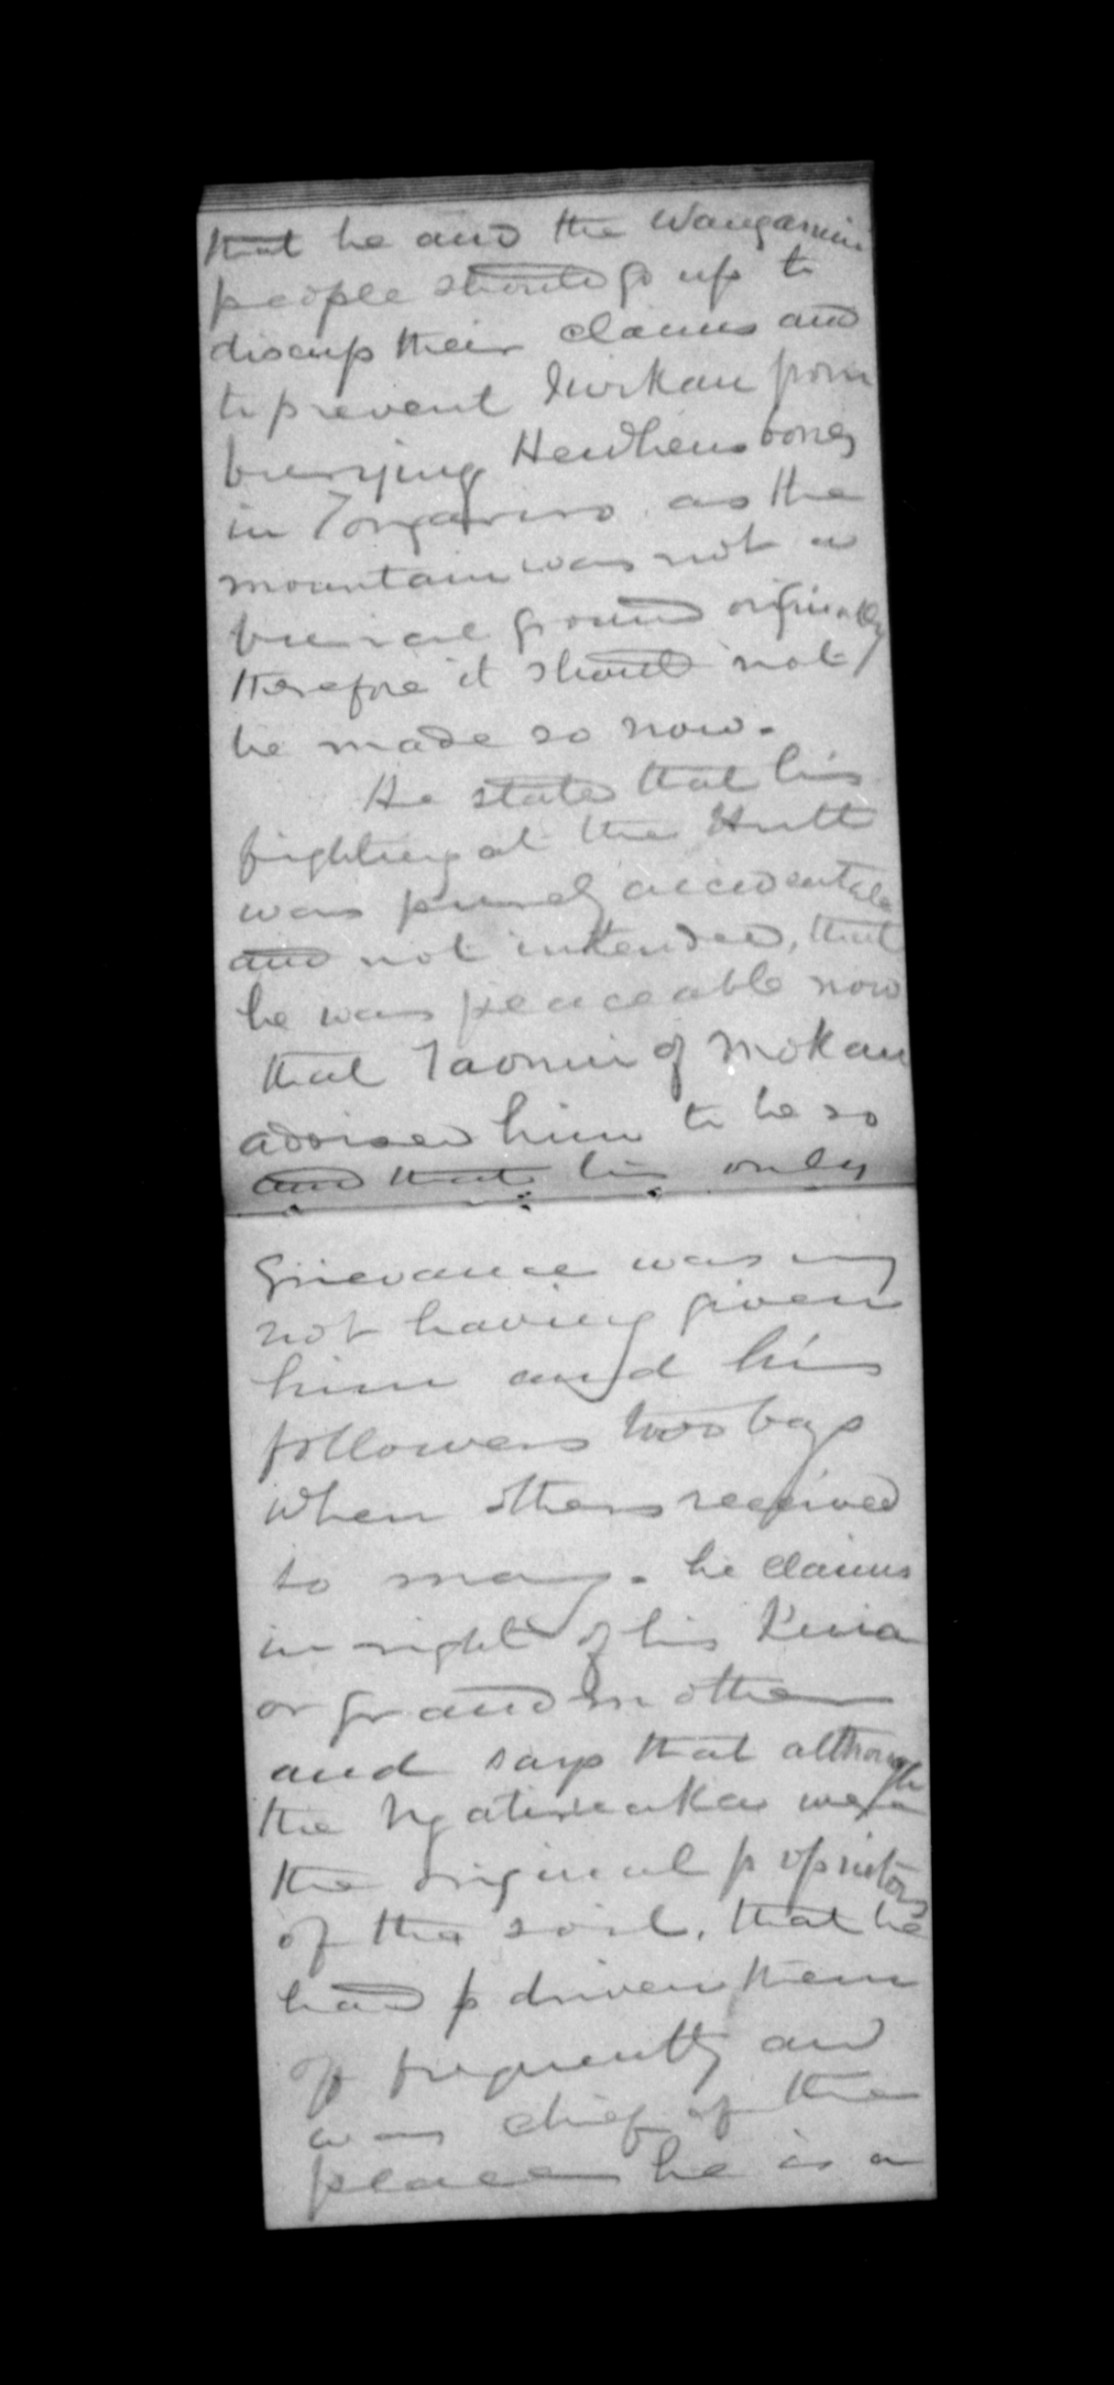 that he and the Wanganui
people should go up to
discuss their claims and
to prevent Iwikau from
burrying Heuheus bones
in Tongariro as the
mountain was not a
burial ground originally
therefore it should not
be made so now.
He states that his
fighting at the Hutt
was purely accidental
and not intended, that
he was peaceable now
that Taonui of Mokau
advised him to be so
and that his only
grievance was my
not having given
him and his
followers two bags
when others received
so many. he claims
in right of his Kuia
or grandmother
and says that although
the Ngatiruaka were
the original propriators
of the soil, that he
had p driven them
off frequently and
was chief of the
place he is a